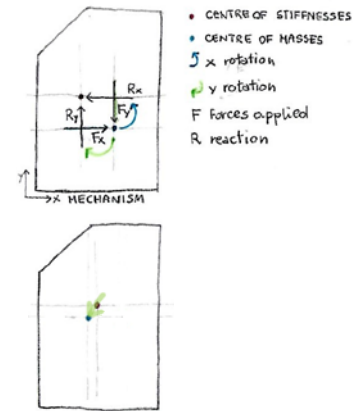 CENTRE OF STIFFNESSES
CENTRE OF MASSES
x rotation
y rotation
F Forces applied
R reaction
Rx
Ry
Fy
Fx
y
x MECHANISM